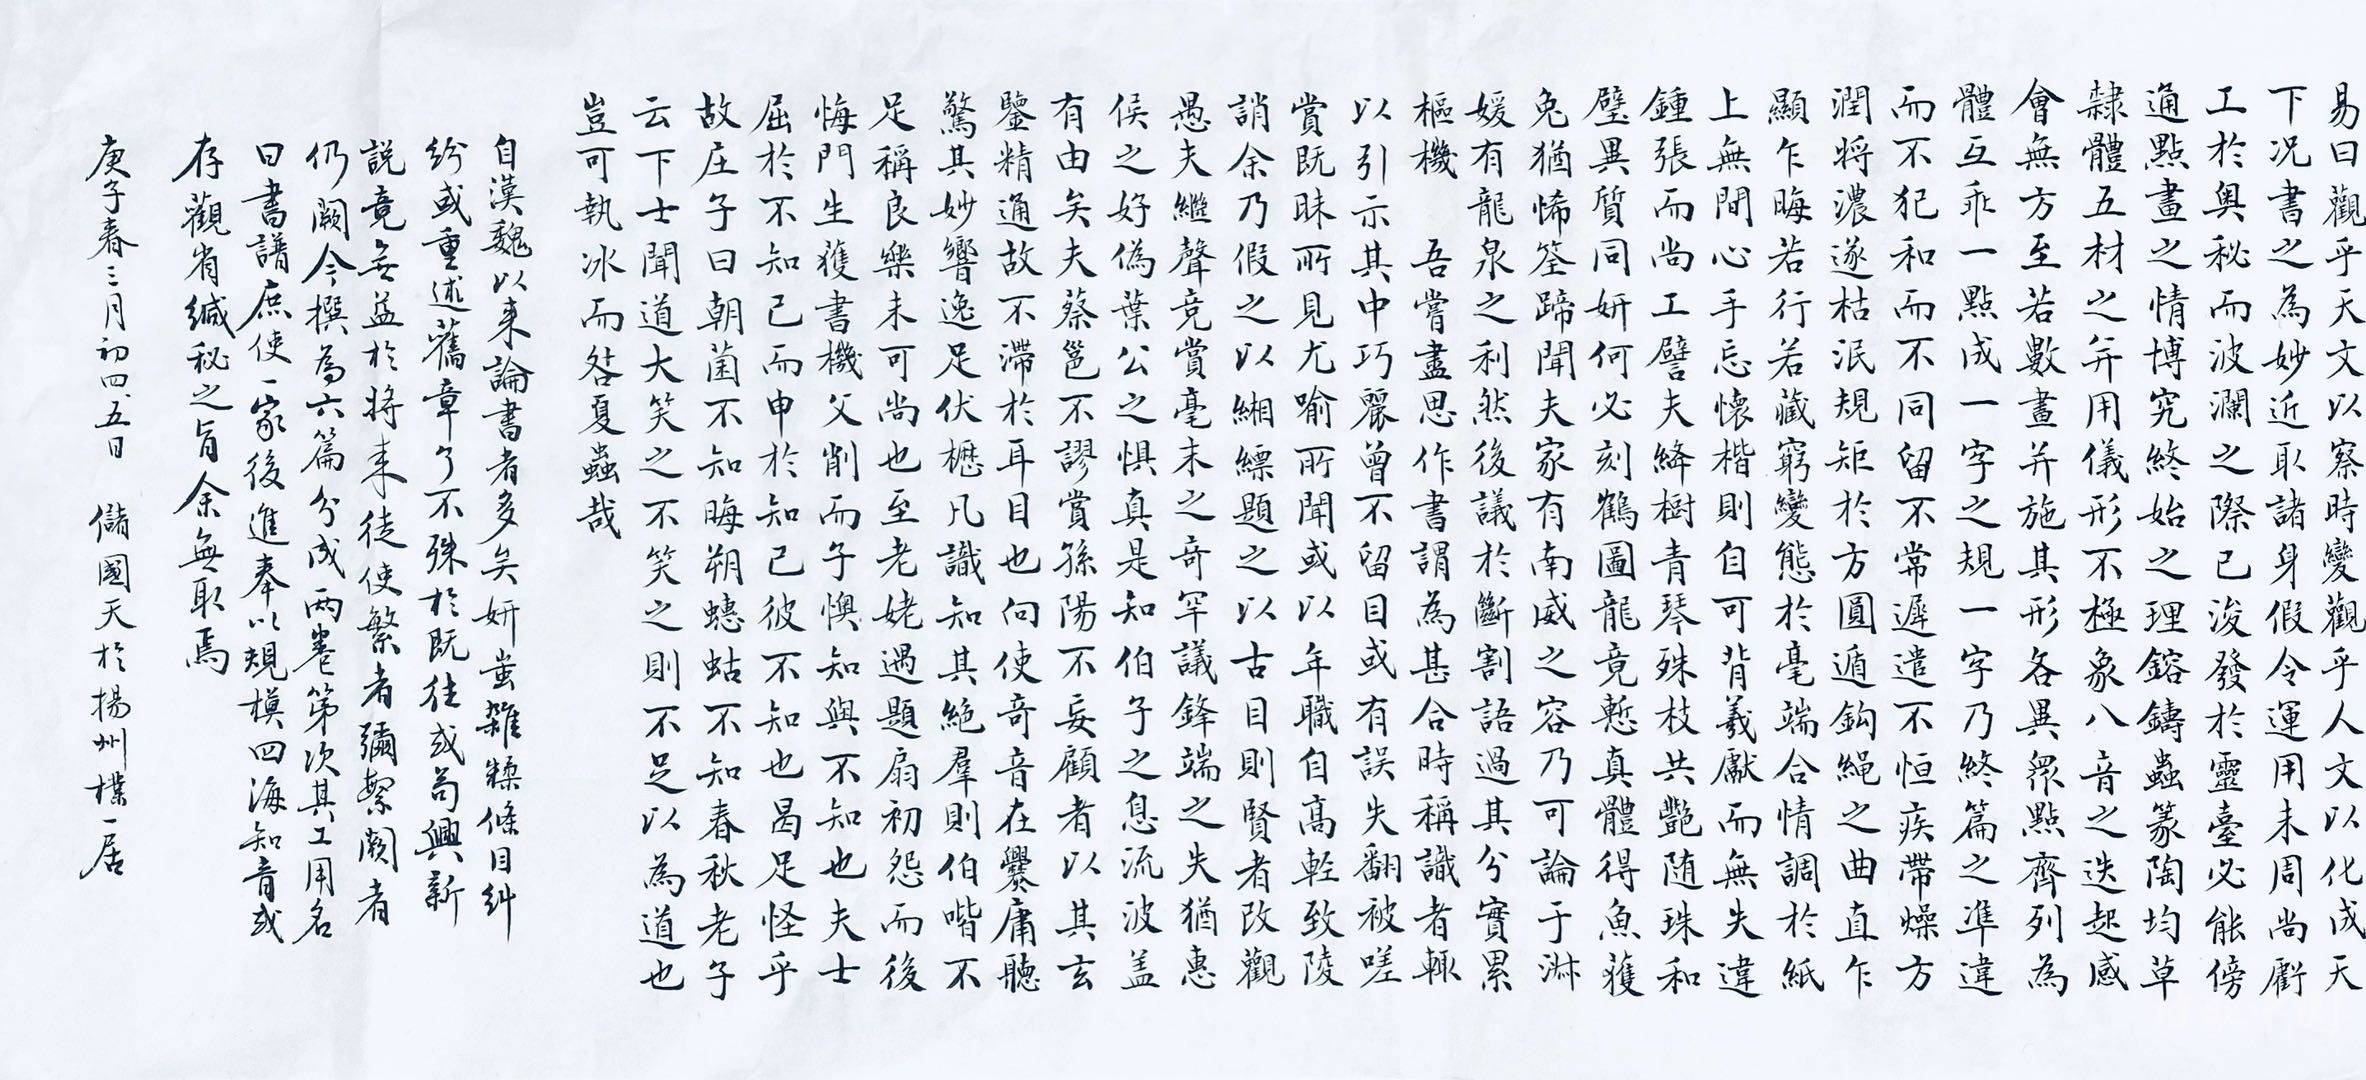 易曰觀乎天文以察時變觀乎人文以化成天
下况書之為妙近取諸身假令運用未周尚虧
工於奥秘而波瀾之際已浚發於靈臺必能傍
通點畫之情博究終始之理鎔鑄蟲篆陶均草
隸體五材之并用儀形不極象八音之迭起感
會無方至若數畫并施其形各異衆點齊列為
體互乖一點成一字之規一字乃終篇之準違
而不犯和而不同留不常遲遣不恒疾帶燥方
潤將濃遂枯泯規矩於方圓遁鈎繩之曲直乍
顯乍晦若行若藏窮變態於毫端合情調於紙
上無間心手忘懷楷則自可背羲獻而無失違
鍾張而尚工譬夫絳樹青琴殊枝共艷随珠和
璧異質同妍何必刻鶴圖龍竟慙真體得魚獲
兔猶悕筌蹄聞夫家有南威之容乃可論于淋
媛有龍泉之利然後議於斷割語過其分實累
樞機　吾嘗盡思作書謂為甚合時稱識者輒
以引示其中巧麗曾不留目或有誤失翻被嗟
賞既昧所見尤喻所聞或以年職自高輊致陵
誚余乃假之以緗縹題之以古目則賢者改觀
愚夫繼聲竞賞毫末之奇罕議鋒端之失猶惠
侯之好偽葉公之惧真是知伯子之息流波盖
有由矣夫蔡邕不謬賞孫陽不妄顧者以其玄
鑒精通故不滯於耳目也向使奇音在爨庸聽
驚其妙響逸足伏櫪凡識知其絶羣則伯喈不
足稱良樂未可尚也至老姥遇題扇初怨而後
悔門生獲書機父削而子懊知與不知也夫士
屈於不知己而申於知己彼不知也曷足怪乎
故庄子曰朝菌不知晦朔蟪蛄不知春秋老子
云下士聞道大笑之不笑之則不足以為道也
豈可執冰而咎夏蟲哉
自漢魏以来論書者多矣妍蚩雜糅條目糾
紛或重述舊章了不殊於既往或苟興新
説竟無益於将来徒使繁者彌繁闕者
仍闕今撰為六篇分成两卷第次其工用名
曰書譜庶使一家後進奉以規模四海知音或
存觀省緘秘之旨余無取焉
庚子春三月初四、五日　儲國天於揚州樸一居